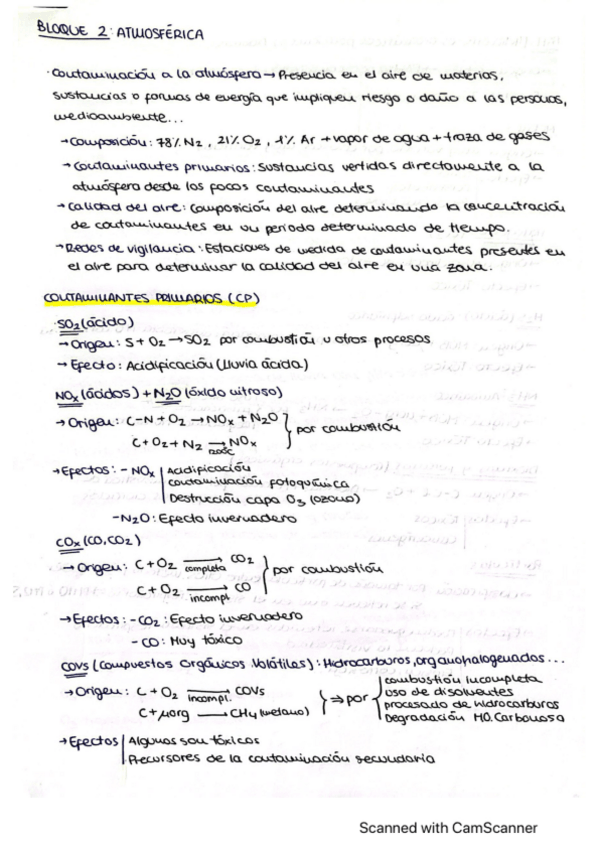 BLOQUE 2: ATMOSFÉRICA
· Contaminación a la atmósfera → Presencia en el aire de materias,
sustancias o formas de energía que impliquen riesgo o daño a las personas,
medioambiente...
→ Composición: 78% N₂, 21% O₂, 1% Ar + vapor de agua + traza de gases
→ Contaminantes primarios: Sustancias vertidas directamente a la
atmósfera desde los focos contaminantes
→ Calidad del aire: Composición del aire determinando la concentración
de contaminantes en un período determinado de tiempo.
→ Redes de vigilancia: Estaciones de medida de contaminantes presentes en
el aire para determinar la calidad del aire en una zona.
CONTAMINANTES PRIMARIOS (CP)
·SO₂ (ácido)
→ Origen: S + O₂ → SO₂ por combustión u otros procesos
→ Efecto: Acidificación (lluvia ácida)
NOx (ácidos) + N₂O (óxido nitroso)
→ Origen: C-N + O₂ → NOx + N₂O } por combustión
C + O₂ + N₂ → NOx
→ Efectos: - NOx | Acidificación
contaminación fotoquímica
Destrucción capa O₃ (ozono)
- N₂O: Efecto invernadero
COx (CO, CO₂)
→ Origen: C + O₂ ⟶ completa CO₂ } por combustión
C + O₂ ⟶ incompl. CO
→ Efectos: - CO₂: Efecto invernadero
- CO: Muy tóxico
COVs (Compuestos Orgánicos Volátiles): Hidrocarburos, organohalogenados...
→ Origen: C + O₂ ⟶ incompl. COVs } ⇒ por | Combustión incompleta
uso de disolventes
C + μorg ⟶ CH₄ (metano) procesado de hidrocarburos
Degradación MO. Carbonosa
→ Efectos | Algunos son tóxicos
Precursores de la contaminación secundaria
Scanned with CamScanner